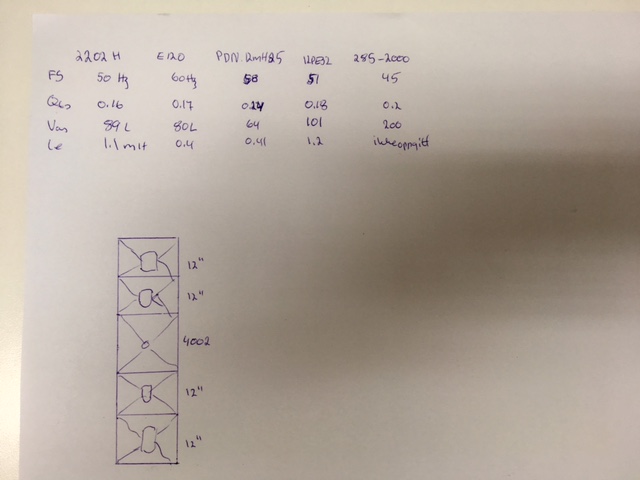 2202 H E120 PDN.12MH25 12PE32 285-2000
FS 50 Hz 60Hz 58 51 45
Qts 0.16 0.17 0.24 0.18 0.2
Vas 89 L 80L 64 101 200
Le 1.1 mH 0.4 0.41 1.2 ikke oppgitt
12"
12"
4002
12"
12"